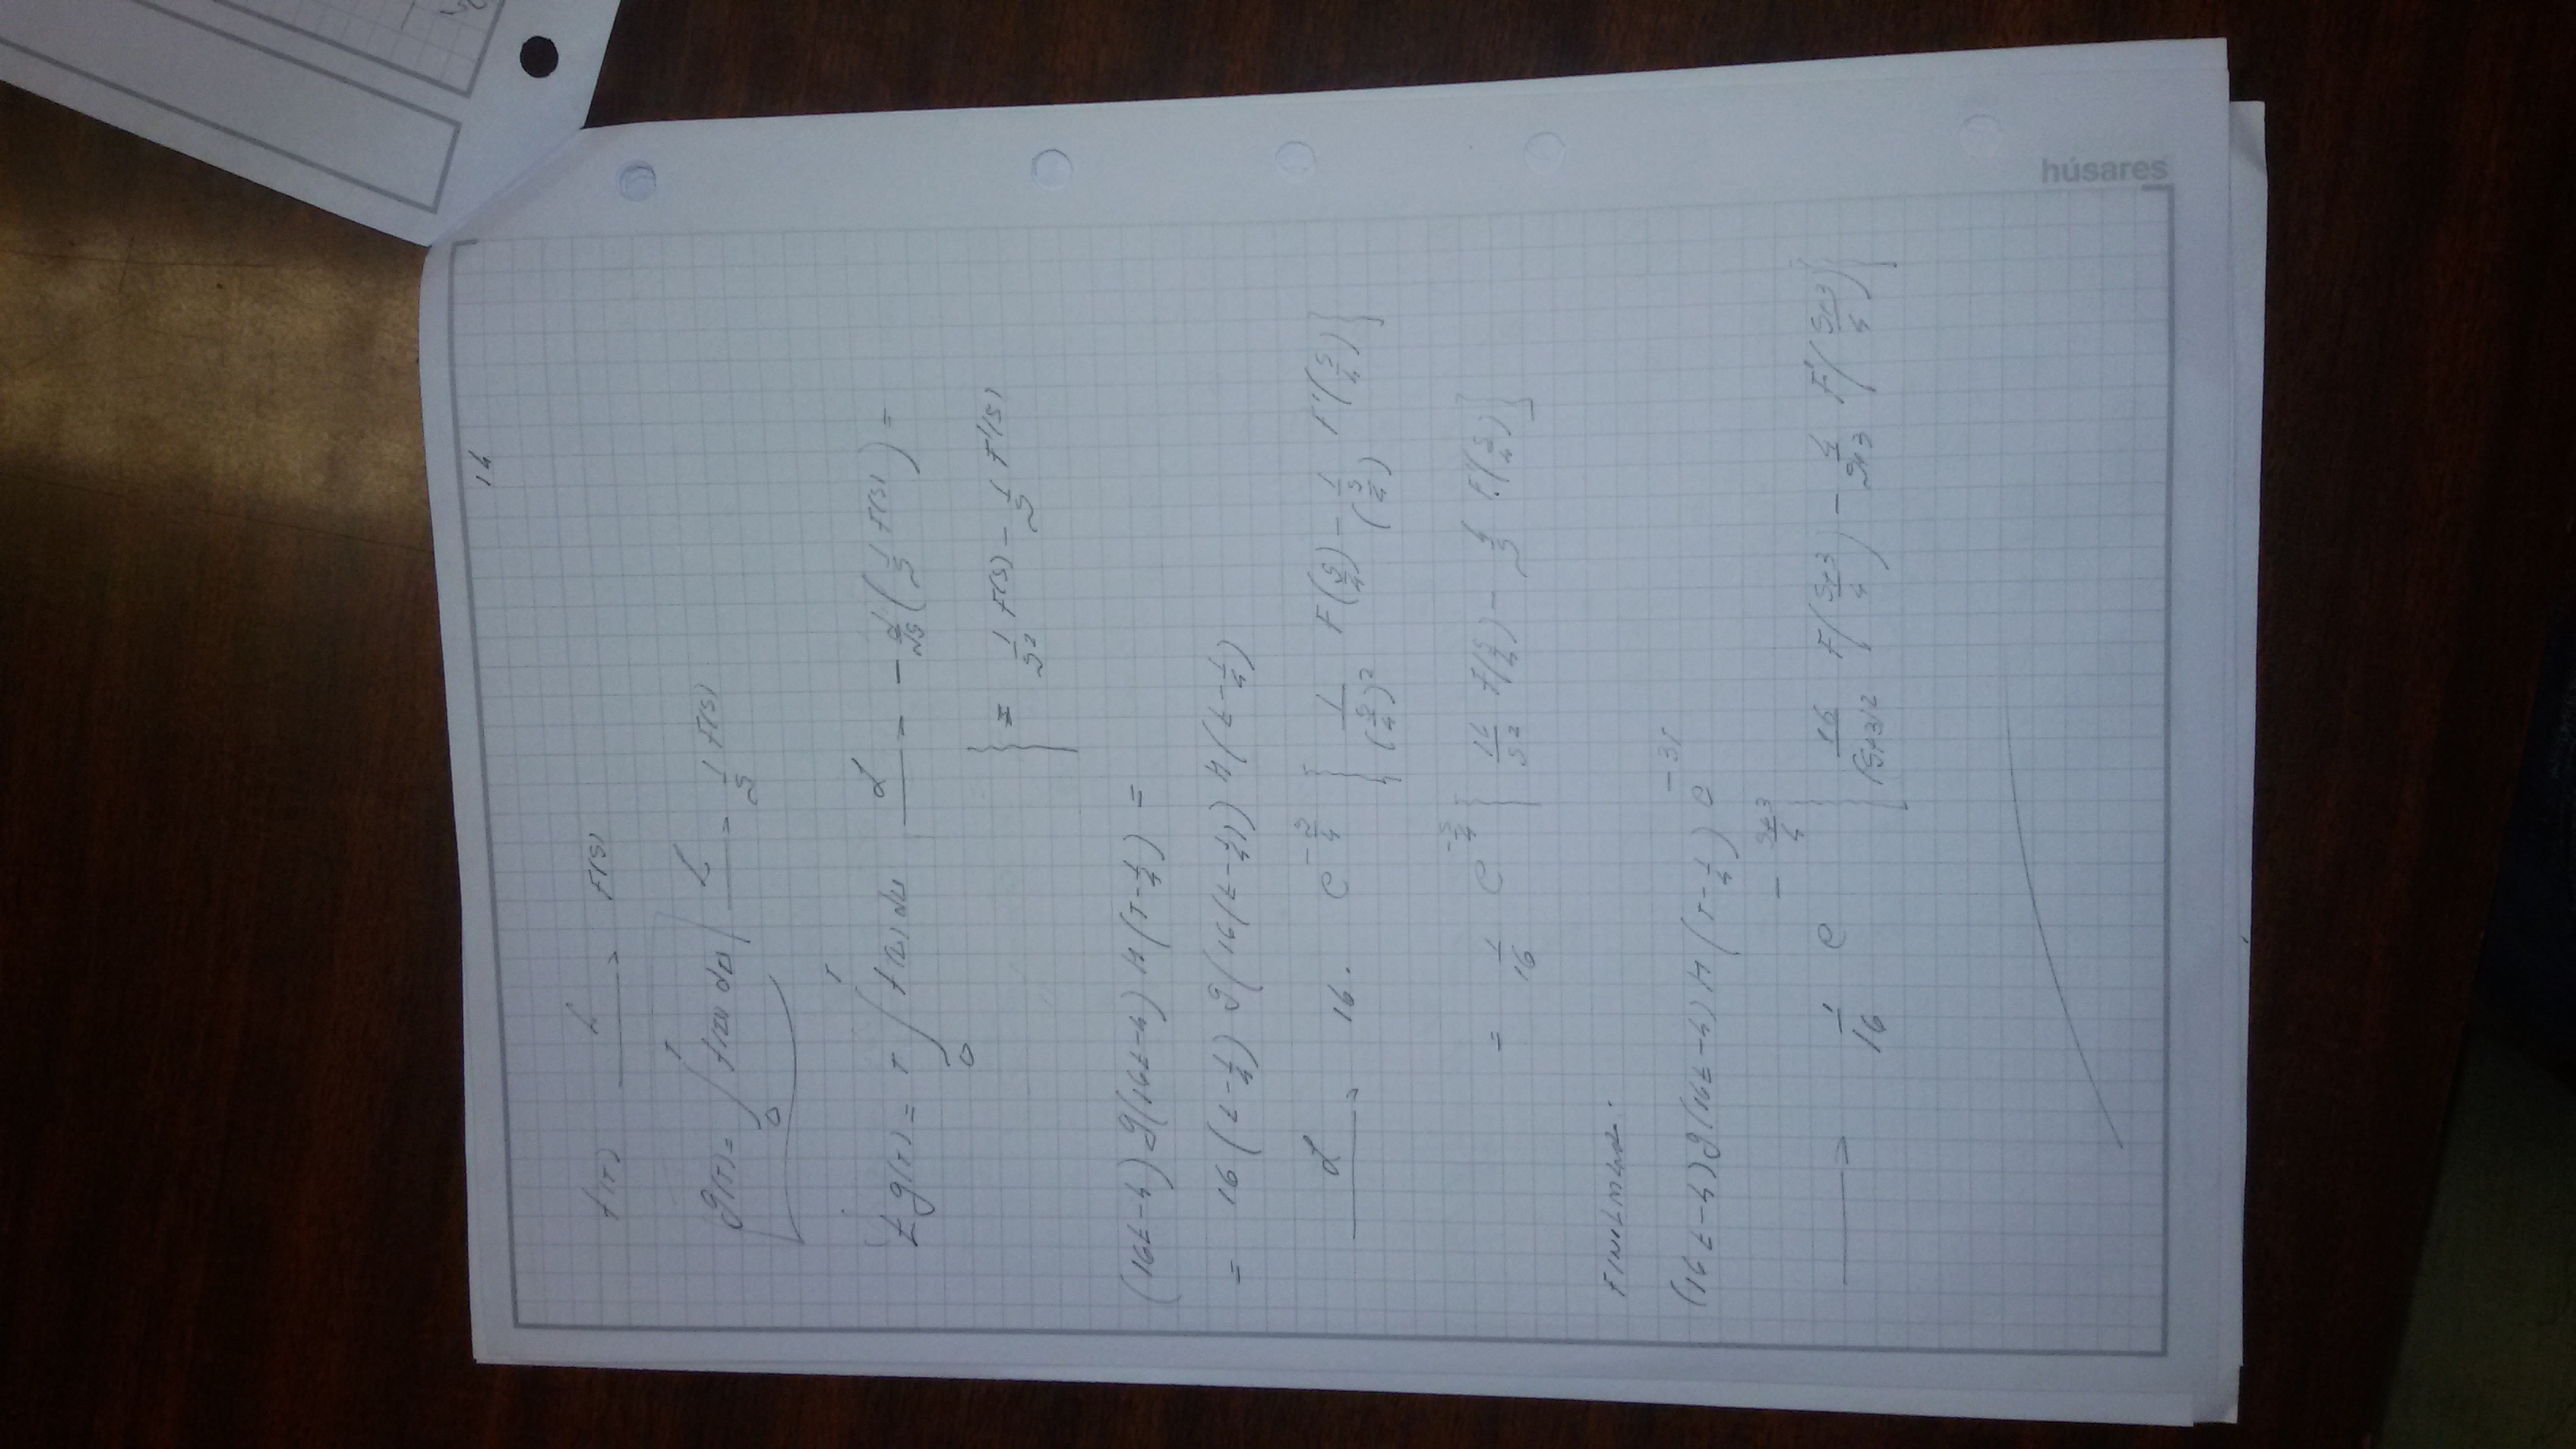 húsares
14
f(t) L→ F(s)
g(t) = ∫₀ᵗ f(u) du L→ 1/s F(s)
t g(t) = t ∫₀ᵗ f(u) du L→ - d/ds (1/s F(s)) =
= 1/s² F(s) - 1/s F'(s)
(16t-4) g(16t-4) H(t-1/4) =
= 16 (t-1/4) g(16(t-1/4)) H(t-1/4)
L→ 16 · e^(-s/4) { 1/(s/4)² F(s/4) - 1/(s/4) F'(s/4) }
= 1/16 e^(-s/4) { 16/s² F(s/4) - 4/s F'(s/4) }
FINALMENTE:
(16t-4) g(16t-4) H(t-1/4) e^(-3t)
→ 1/16 e^(-(s+3)/4) { 16/(s+3)² F((s+3)/4) - 4/(s+3) F'((s+3)/4) }